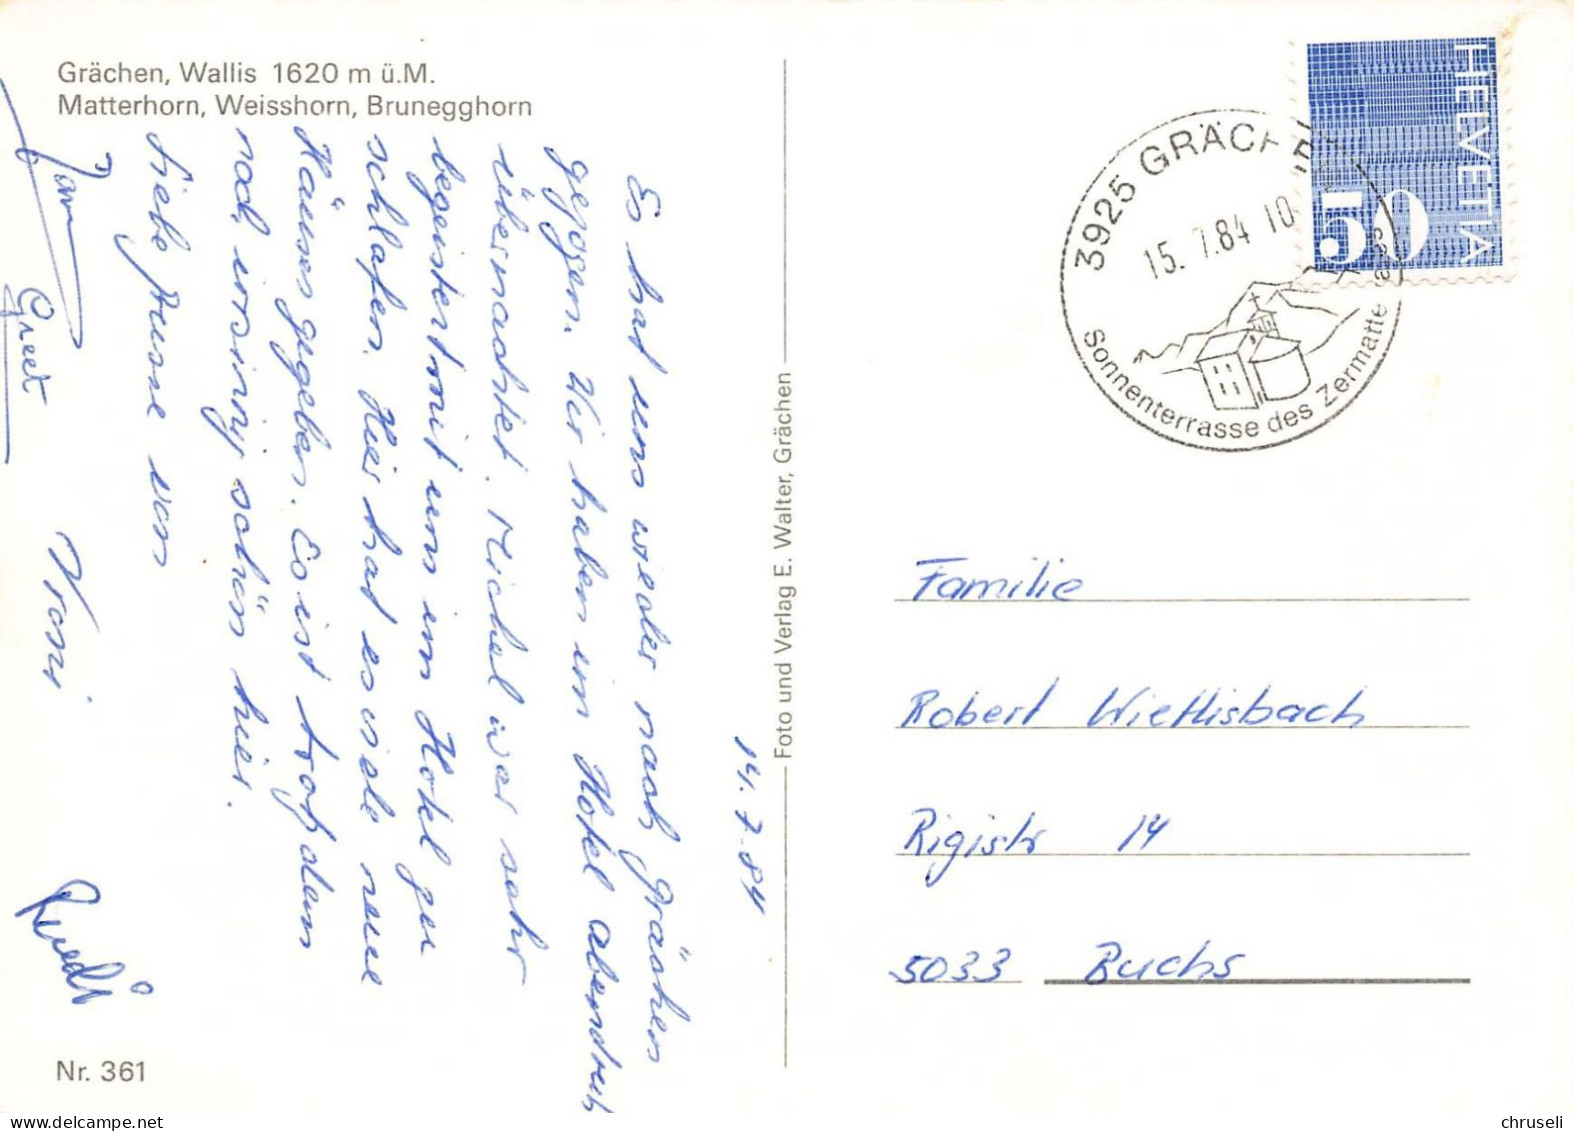 Grächen, Wallis 1620 m ü.M.
Matterhorn, Weisshorn, Brunegghorn
14.7.84
Es hat uns wieder nach Grächen
gezogen. Wir haben im Hotel
übernachtet. Michel war sehr
begeistert mit uns im Hotel zu
schlafen. Hier hat es viele neue
Häuser gegeben. Es ist trotzdem
noch schön hier.
Liebe Grüsse von
Greet
Vroni
Ruedi
Nr. 361
Foto und Verlag E. Walter, Grächen
3925 GRÄCHEN
15. 7.84 10
Sonnenterrasse des Zermatte
HELVETIA
50
Familie
Robert Wietlisbach
Rigistr 14
5033 Buchs
chruseli